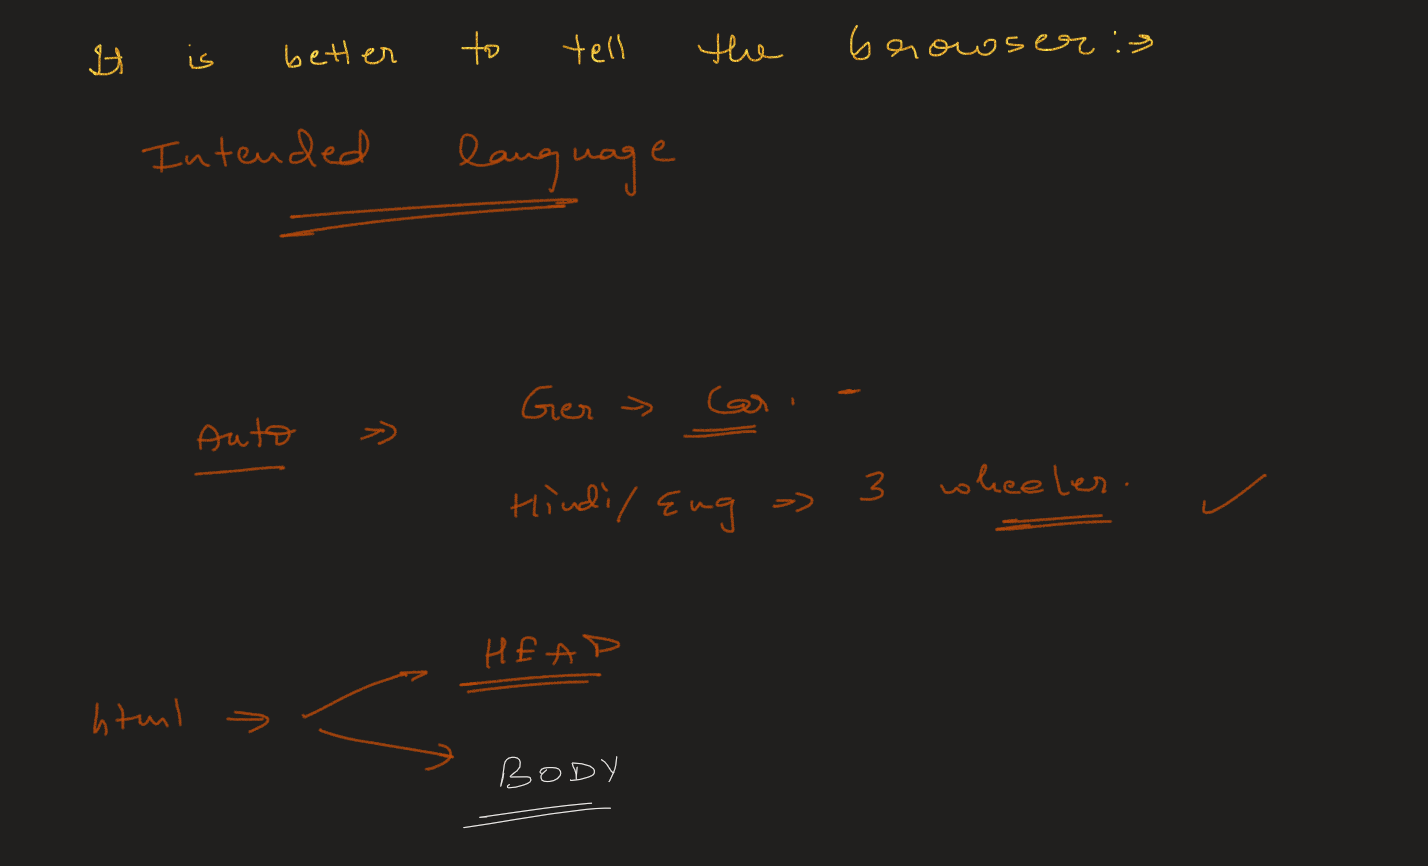 It is better to tell the browser :→
Intended language
Ger ⇒ Car. -
Auto ⇒
Hindi/Eng ⇒ 3 wheeler. ✓
HEAD
html ⇒
BODY